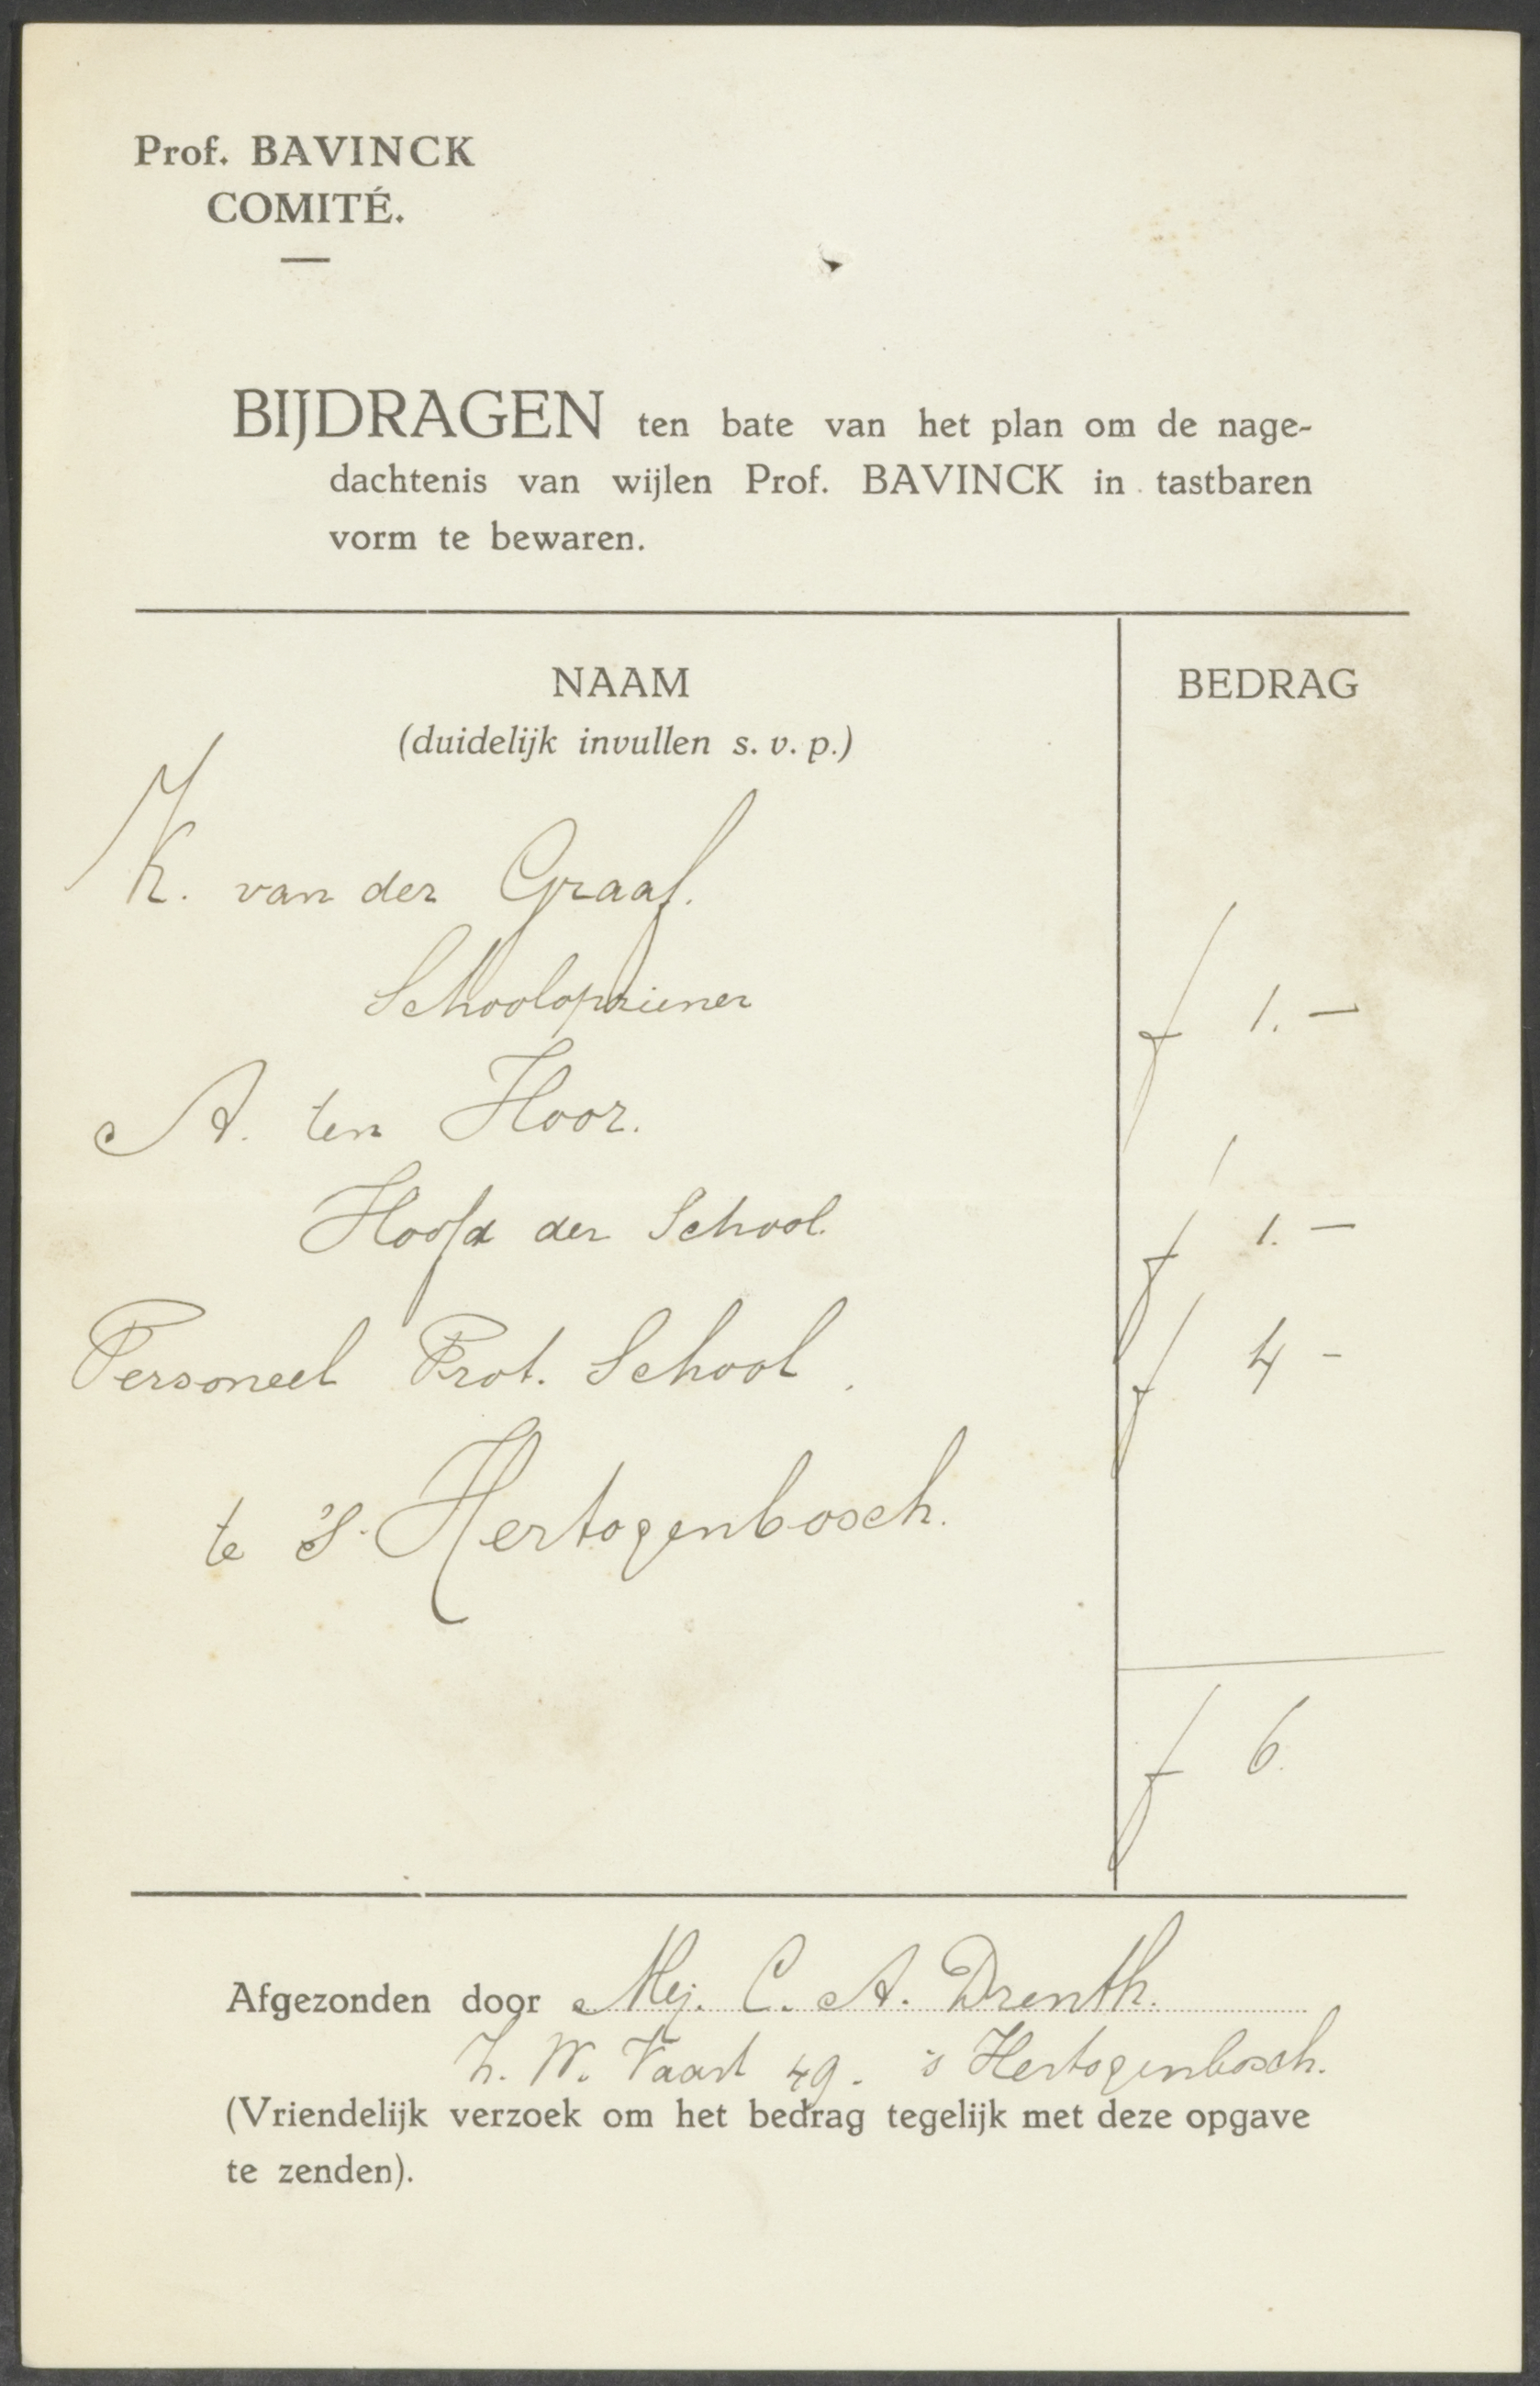 Prof. BAVINCK
COMITÉ.
BIJDRAGEN ten bate van het plan om de nage-
dachtenis van wijlen Prof. BAVINCK in tastbaren
vorm te bewaren.
NAAM BEDRAG
(duidelijk invullen s. v. p.)
K. van der Graaf.
Schoolopziener f 1. —
A. ten Hoor.
Hoofd der School. f 1. —
Personeel Prot. School. f 4 -
te 's-Hertogenbosch.
f 6.
Afgezonden door Mej. C. A. Drenth.
Z. W. Vaart 49. 's Hertogenbosch.
(Vriendelijk verzoek om het bedrag tegelijk met deze opgave
te zenden).